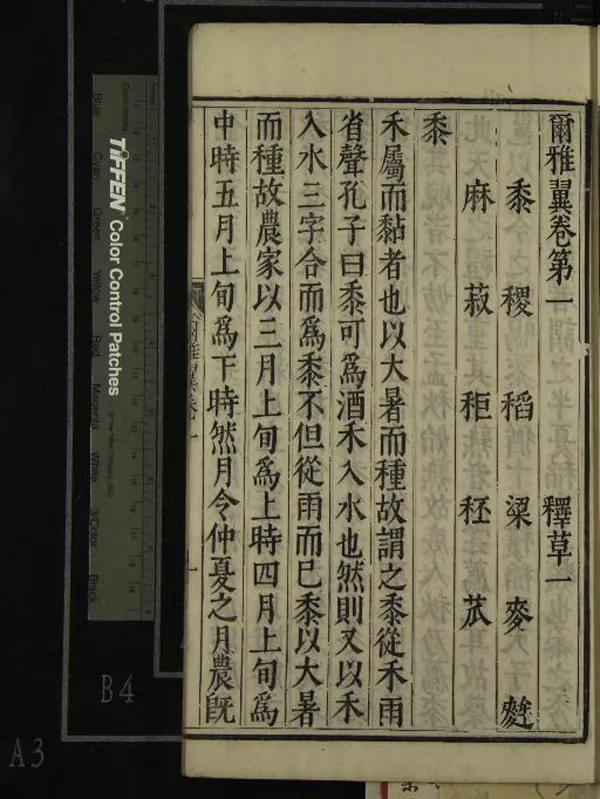 爾雅翼卷第一 釋草一
黍 稷 稻 粱 麥 麰
麻 菽 秬 秠 苽
黍
禾屬而黏者也以大暑而種故謂之黍從禾雨
省聲孔子曰黍可爲酒禾入水也然則又以禾
入水三字合而爲黍不但從雨而已黍以大暑
而種故農家以三月上旬爲上時四月上旬爲
中時五月上旬爲下時然月令仲夏之月農旣
TIFFEN Color Control Patches
Blue
Cyan
Green
Yellow
Red
Magenta
White
3/Color
Black
B4
A3